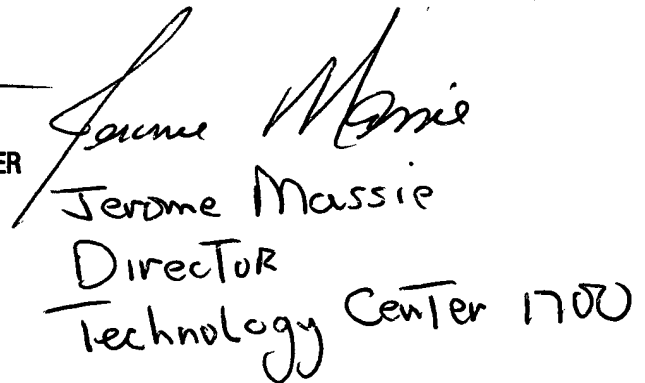 Jerome Massie
ER
Jerome Massie
Director
Technology Center 1700